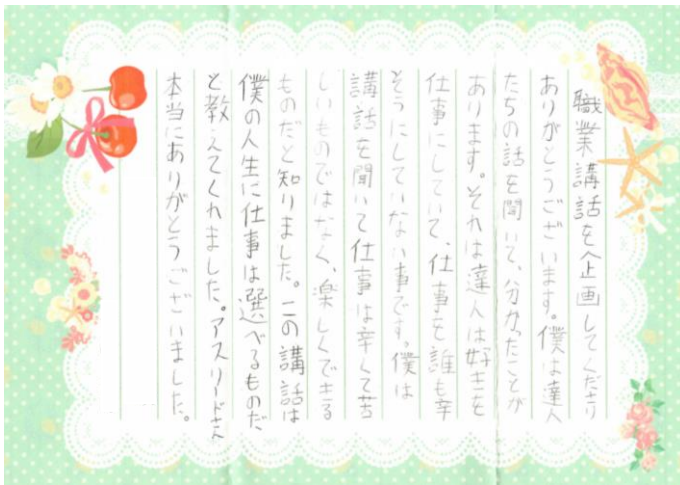 職業講話を企画してくださり
ありがとうございます。僕は達人
たちの話を聞いて、分かったことが
あります。それは達人は好きを
仕事にしていて、仕事を誰も辛
そうにしていない事です。僕は
講話を聞いて仕事は辛くて苦
しいものではなく、楽しくできる
ものだと知りました。この講話は
僕の人生に仕事は選べるものだ
と教えてくれました。アスリードさん
本当にありがとうございました。